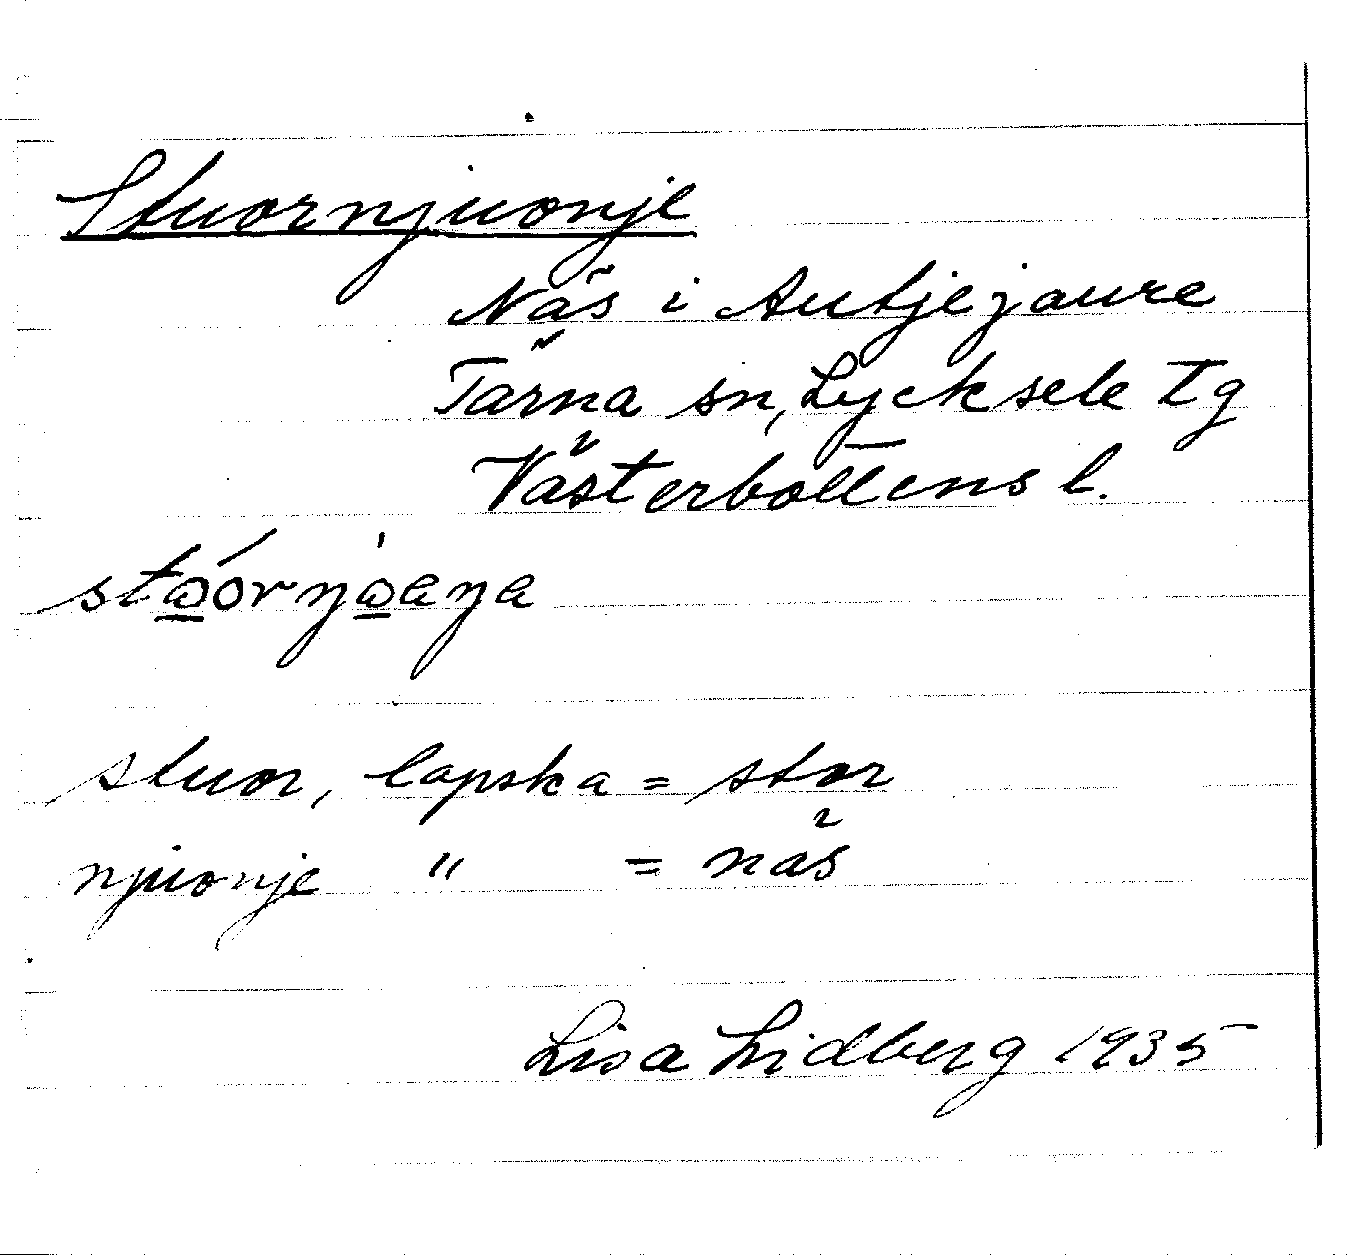 Stuornjuonje
Näs i Autjejaure
Tärna sn, Lycksele tg
Västerbottens l.
stuor, lapska = stor
njuonje " = näs
Lisa Lidberg 1935